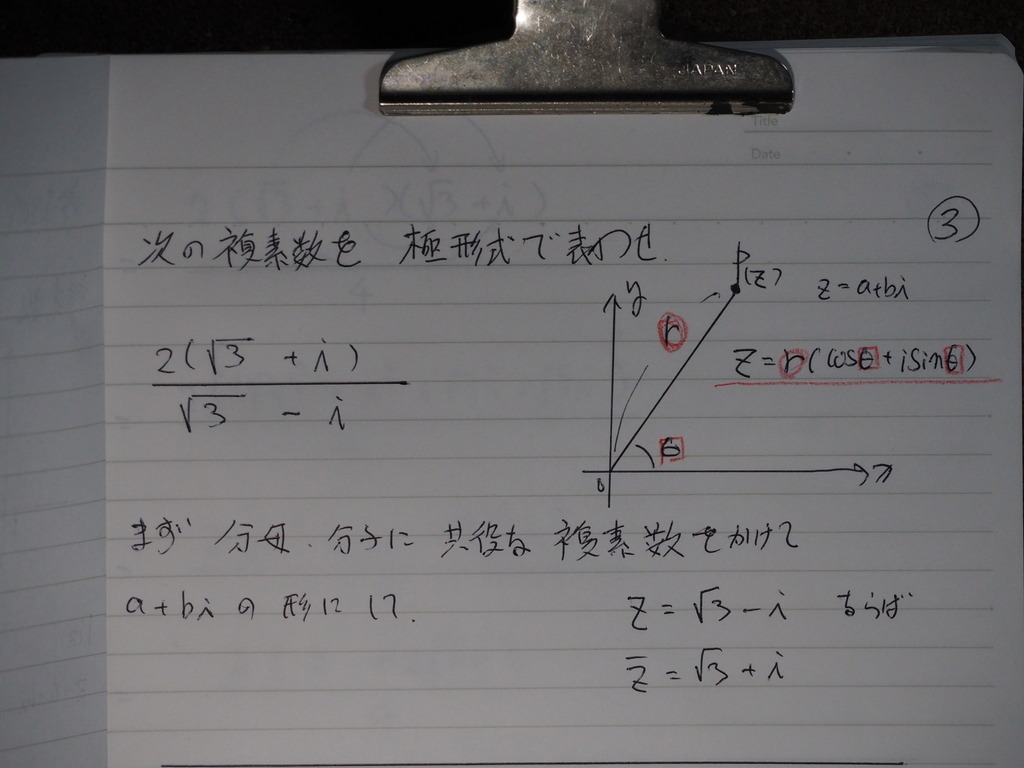 JAPAN
Title
Date
③
次の複素数を 極形式で表わせ.
2(√3 + i)
√3 - i
y
P
(z)
z = a+bi
r
z = r(cosθ + isinθ)
θ
0
x
まず 分母.分子に 共役な 複素数をかけて
a+bi の 形にして.
z = √3 - i ならば
z̄ = √3 + i